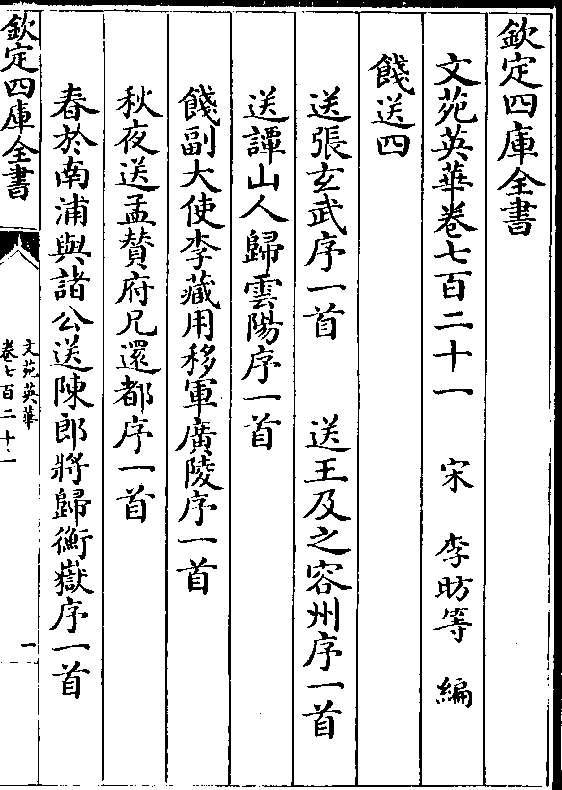 欽定四庫全書
文苑英華卷七百二十一　宋　李昉等　編
餞送四
送張玄武序一首　送王及之容州序一首
送譚山人歸雲陽序一首
餞副大使李藏用移軍廣陵序一首
秋夜送孟贊府兄還都序一首
春於南浦與諸公送陳郎將歸衡嶽序一首
欽定四庫全書
文苑英華
卷七百二十一
一